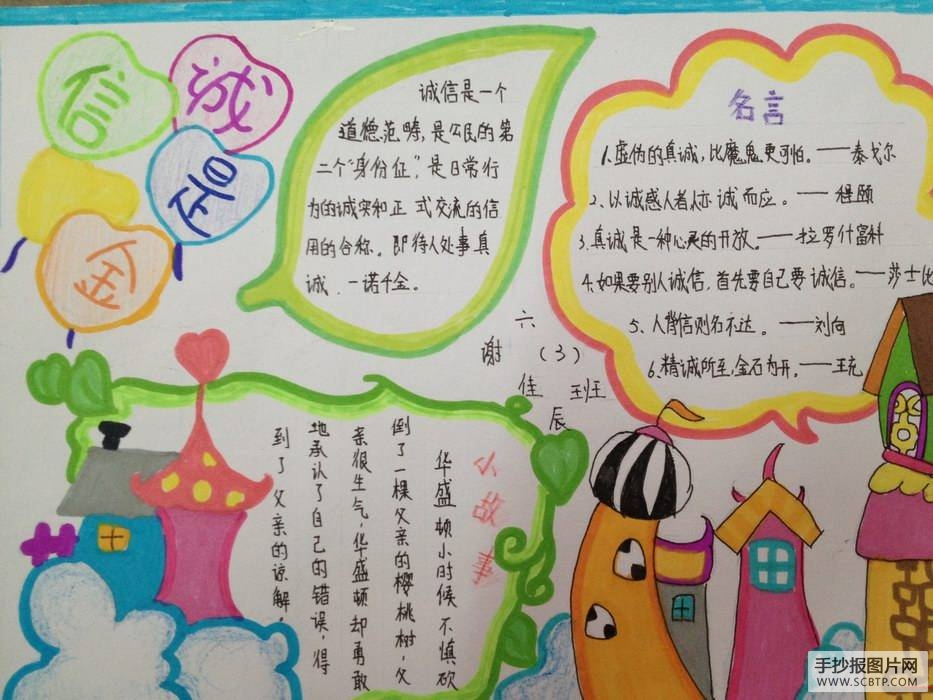 诚
信
是
金
诚信是一个
道德范畴,是公民的第
二个“身份证”,是日常行
为的诚实和正式交流的信
用的合称。即待人处事真
诚、一诺千金。
名言
1.虚伪的真诚,比魔鬼更可怕。——泰戈尔
2.以诚感人者人亦诚而应。——程颐
3.真诚是一种心灵的开放。——拉罗什富科
4.如果要别人诚信,首先要自己要诚信。——莎士比
5、人背信则名不达。——刘向
6.精诚所至,金石为开。——王充
六(3)班
谢佳辰
小故事
华盛顿小时候不慎砍
倒了一棵父亲的樱桃树,父
亲很生气,华盛顿却勇敢
地承认了自己的错误,得
到了父亲的谅解。
手抄报图片网
WWW.SCBTP.COM